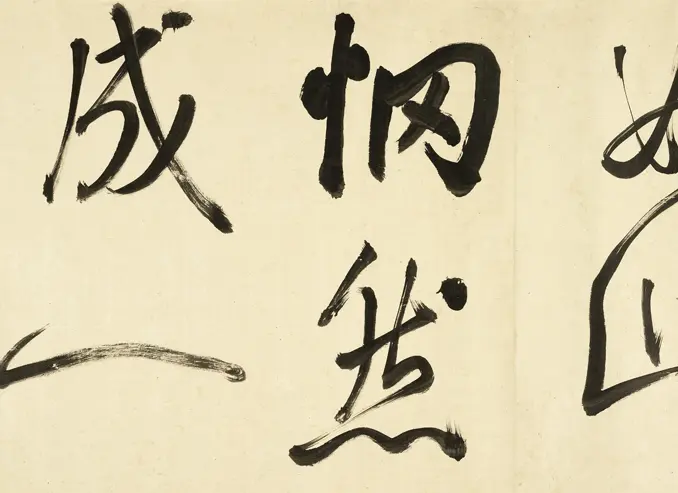 惘然
成一